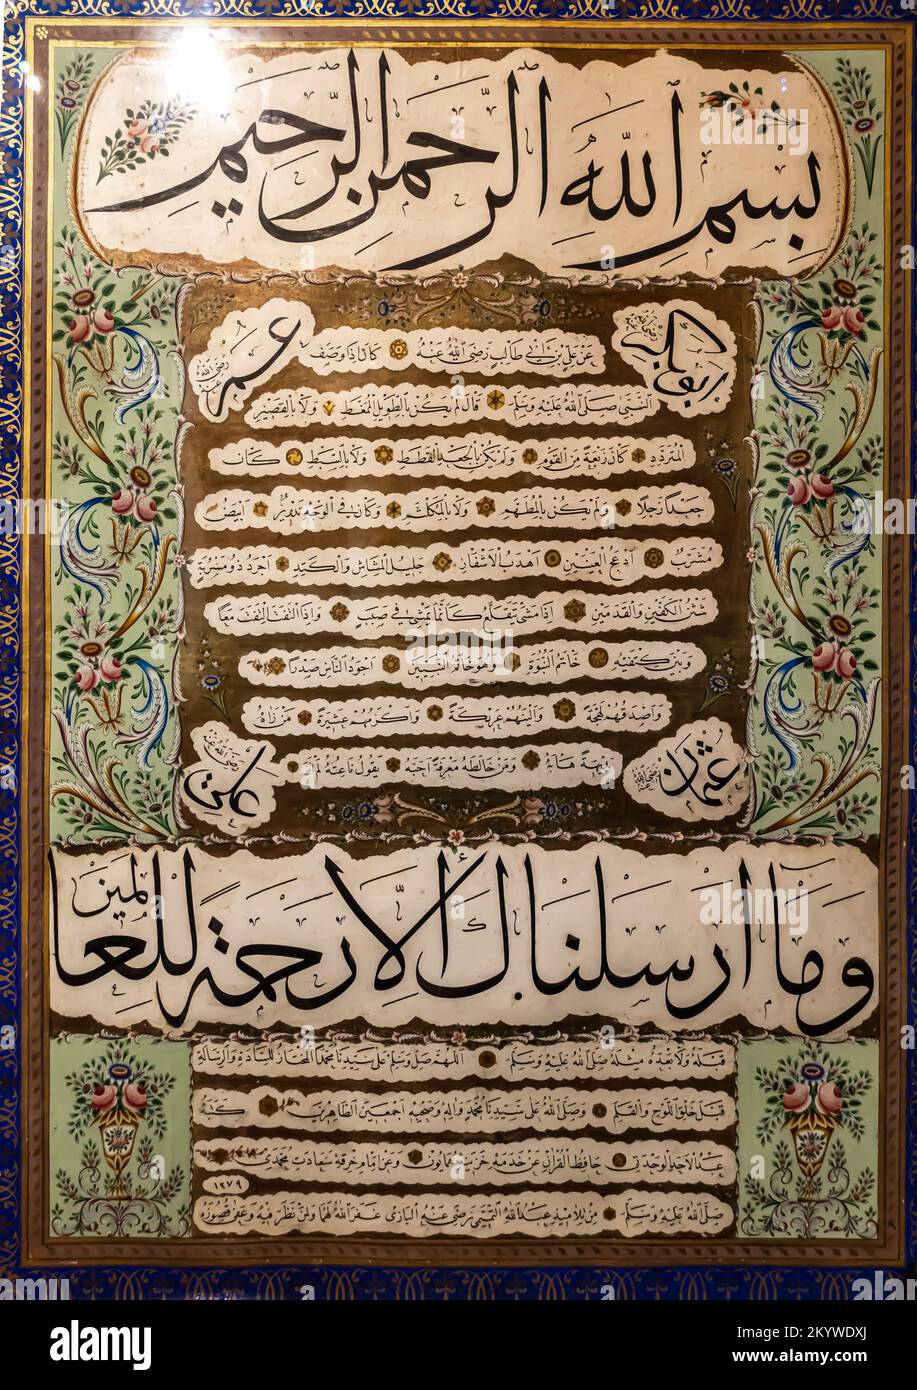 بسم الله الرحمن الرحيم
ابوبكر رضي الله عنه
عمر رضي الله عنه
عن علي بن ابي طالب رضي الله عنه كان اذا وصف
النبي صلى الله عليه وسلم قال لم يكن بالطويل الممغط ولا بالقصير
المتردد كان ربعة من القوم ولم يكن بالجعد القطط ولا بالسبط كان
جعدا رجلا ولم يكن بالمطهم ولا بالمكلثم وكان في الوجه تدوير ابيض
مشرب ادعج العينين اهدب الاشفار جليل المشاش والكتد اجرد ذو مسربة
شثن الكفين والقدمين اذا مشى تقلع كانما يمشي في صبب واذا التفت التفت معا
وبين كتفيه خاتم النبوة وهو خاتم النبيين اجود الناس صدرا
واصدقهم لهجة والينهم عريكة واكرمهم عشيرة من راه
بديهة هابه ومن خالطه معرفة احبه يقول ناعته لم ار
عثمان رضي الله عنه
علي رضي الله عنه
وما ارسلناك الا رحمة للعالمين
قبله ولا بعده مثله صلى الله عليه وسلم اللهم صل وسلم على سيدنا محمد المختار للسيادة والرسالة
قبل خلق اللوح والقلم وصلى الله على سيدنا محمد واله وصحبه اجمعين الطاهرين كتبه
حافظ القران عن خدمه وعن امام خرقة سعادت محمدى
صلى الله عليه وسلم من تلاميذ عبد الله رضي عنه البارى غفر الله لهما ولمن نظر فيه وعفر قصوره
١٢٧٩
alamy
Image ID: 2KYWDXJ
www.alamy.com